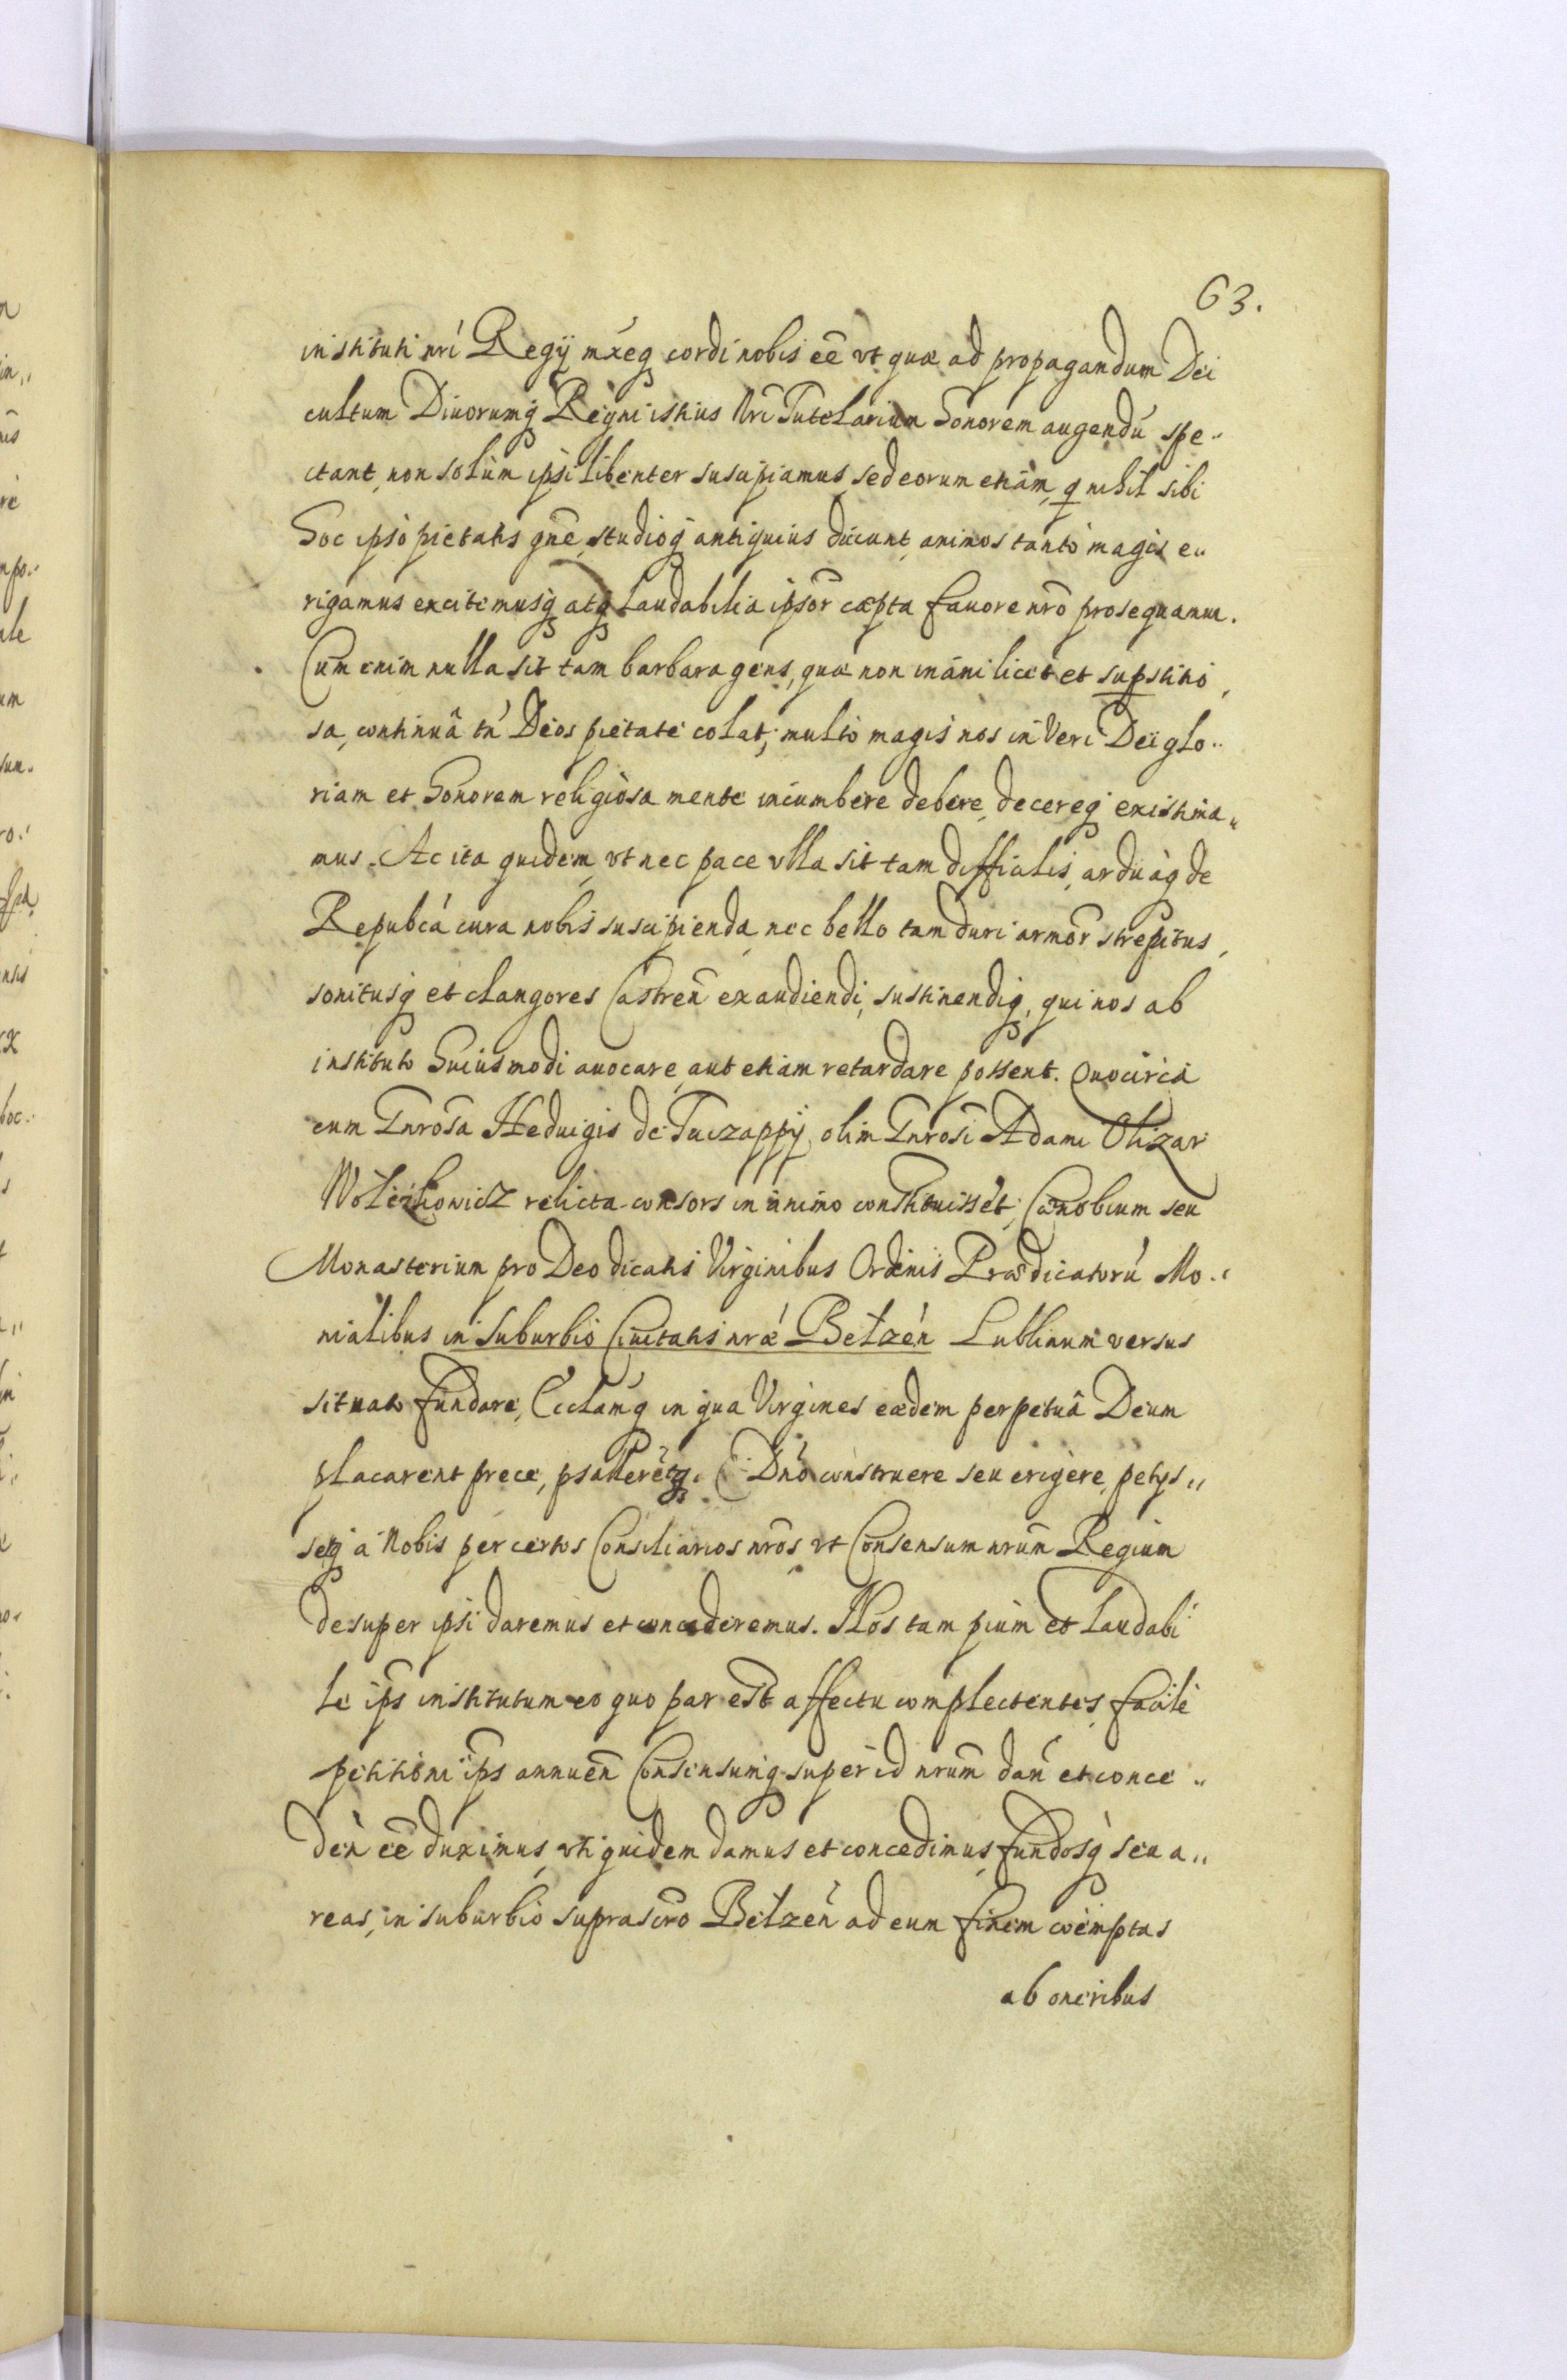 63.
instituti nri Regÿ mxeq cordi nobis eē vt quæ ad propagandum Dei
cultum Diuorumq Regni istius Nri Tutelarium honorem augendú spe„
ctant, non solùm ipsi libenter suscipiamus, sed eorum etiàm, q nihil sibi
hoc ipso pietatis gñe, studioq antiquius ducunt, animos tantò magis e„
rigamus excitemusq atq laudabilia ipsor̃ cæpta fauore nrõ prosequamur.
Cum enim nulla sit tam barbara gens, quæ non inani licet et supstitio,
sa, continuâ tń Deos pietate colat; multò magis nos in Veri Dei glo„
riam et honorem religiòsa mente incumbere debere, decereq existima„
mus. Ac ita quidem, vt nec pace vlla sit tam difficilis, arduàq de
Repubcá cura nobis suscipienda, nec bello tam duri armor̃ strepitus,
sonitusq et clangores Castreñ exaudiendi, sustinendiq, qui nos ab
instituto huiusmodi auocare, aut etiam retardare possent. Quocirca
cum Gnrosa Heduigis de Tuczappÿ, olim Gnrosi Adami Olizar
Wolczkowicz relicta consors in animo constituisset; Cænobium seu
Monasterium pro Deo dicatis Virginibus Ordinis Prædicatorú Mo„
nialibus in Suburbio Ciuitatis nræ Bełzeń Lublinum versus
situato fundare, Ecclamq in qua Virgines eædem perpetuâ Deum
placarent prece, psallerētq Dńo construere seu erigere, petÿs„
seq à Nobis per certos Consiliarios nrõs, vt Consensum nrum̃ Regium
desuper ipsi daremus et concederemus. Nos tam pium et laudabi
le ips̃ institutum eo quo par est affectu complectentes, facilè
petitioni ips̃ annueñ Consensumq super id nrum̃ dañ et conce„
deñ eē duximus, vti quidem damus et concedimus, fundosq seu a„
reas, in suburbio suprascrõ Bełzeń ad eum finem coëmptas
ab oneribus